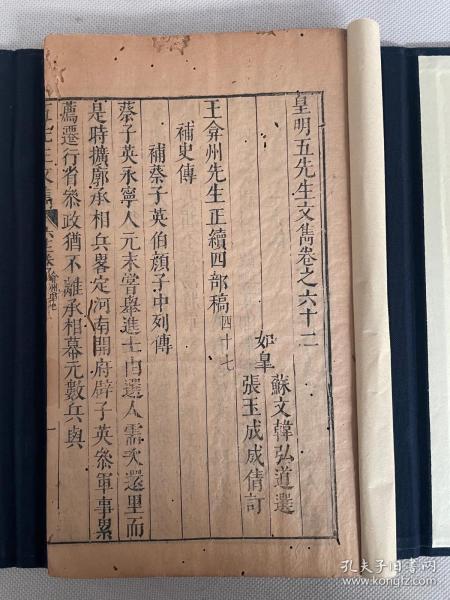 皇明五先生文雋卷之六十二
如臯
蘇文韓弘道選
張玉成成倩訂
王弇州先生正續四部稿 四十七
補史傳
補蔡子英伯顏子中列傳
蔡子英永寧人元末嘗舉進士由選人需次還里而
是時擴廓丞相兵畧定河南開府辟子英參軍事累
薦遷行省參政猶不離丞相幕元數兵與
孔夫子旧书网
www.kongfz.com